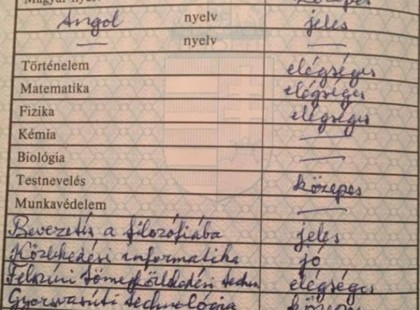 Magyar nyelv közepes
Angol nyelv jeles
— nyelv —
Történelem elégséges
Matematika elégséges
Fizika elégséges
Kémia —
Biológia —
Testnevelés közepes
Munkavédelem —
Bevezetés a filozófiába jeles
Közlekedési informatika jó
Felszíni tömegközlekedési techn. elégséges
Gyorsvasúti technológia közepes